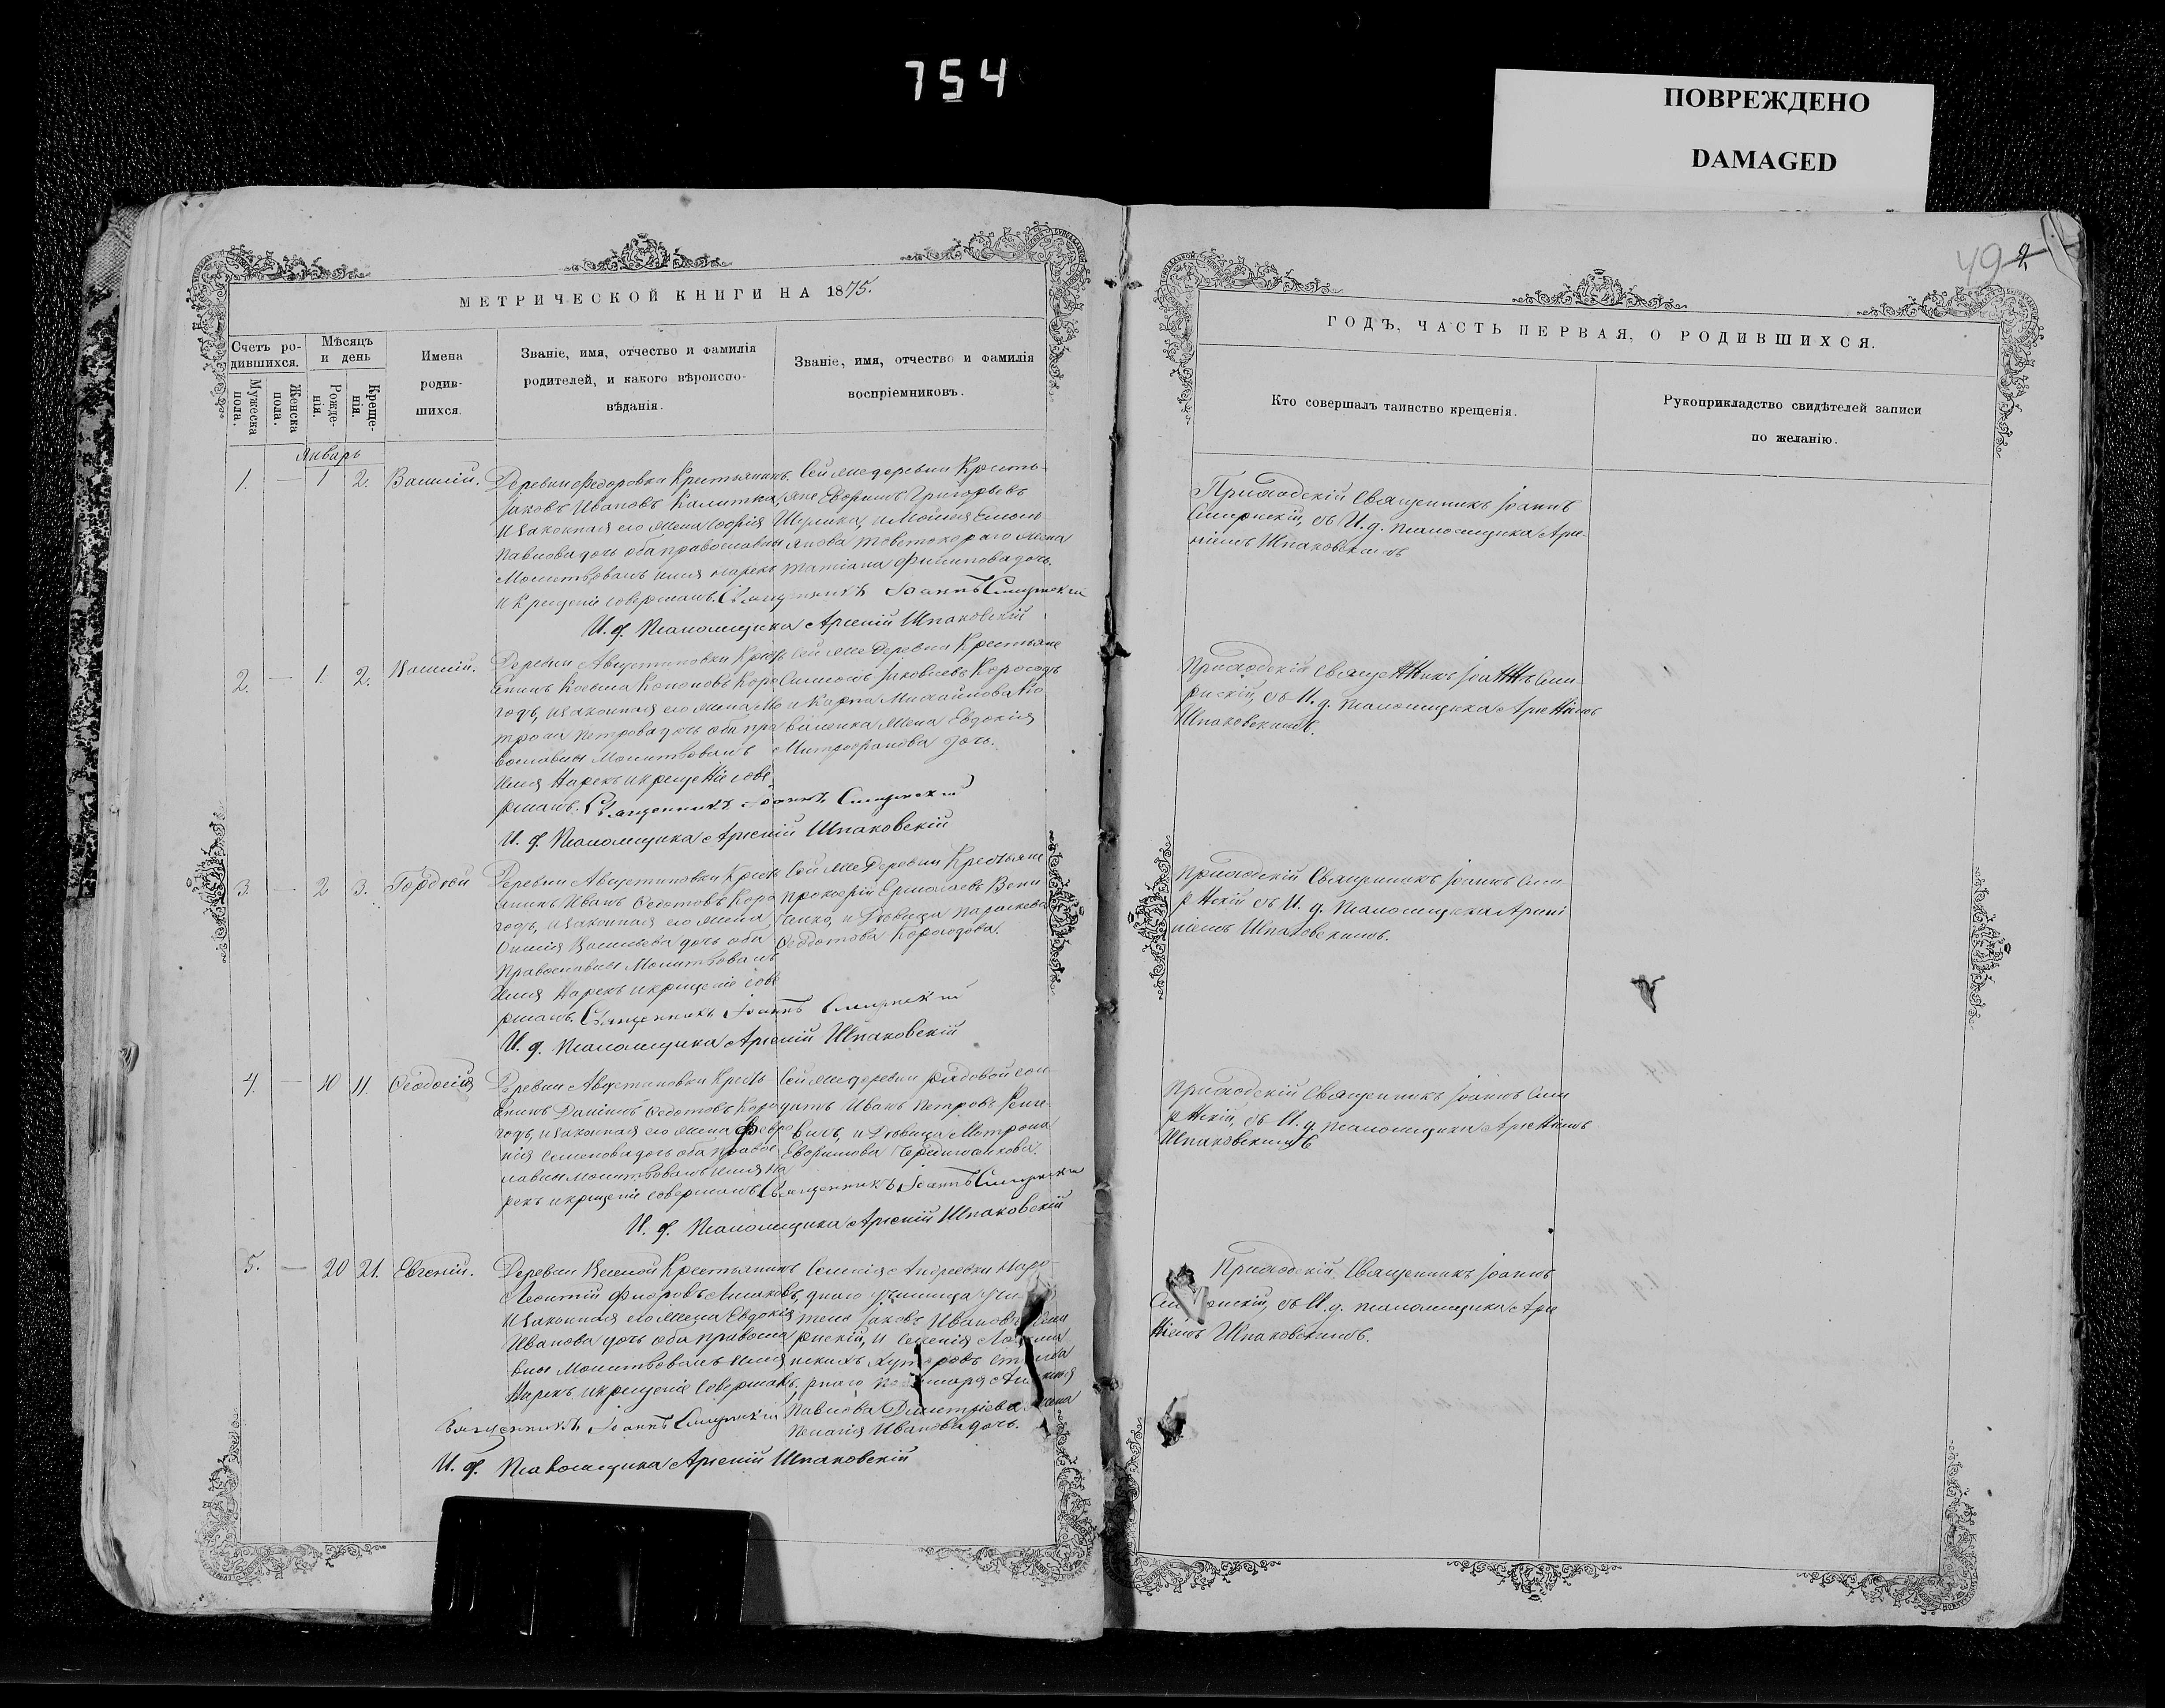 754
ПОВРЕЖДЕНО
DAMAGED
49 2
МЕТРИЧЕСКОЙ КНИГИ НА 1875.
Счетъ ро-
дившихся.
Мужеска
пола.
Женска
пола.
Мѣсяцъ
и день
Рожде-
нія.
Креще-
нія.
Имена
родив-
шихся.
Званіе, имя, отчество и фамилія
родителей, и какого вѣроиспо-
вѣданія.
Званіе, имя, отчество и фамилія
воспріемниковъ.
Январь
1. — 1 2. Василій.
Деревни Федоровки Крестьянинъ
Іаковъ Ивановъ Калитка,
и законная его жена Софія
Павлова дочь оба православны
Молитвовалъ имя нарекъ
и крещеніе совершалъ. Священникъ Іоаннъ
И. д. Псаломщика Арсеній Шпаковскій
Сей же деревни Кресть-
яне Григорьевъ
Шулика, и Моисея
жена
Татіана Филиппова дочь.
2. — 1. 2. Василій.
Деревни Августиновки Крестъ
янинъ Косьма Кононовъ Коро
годъ, и законная его жена Мо
трона Петрова дочь оба пра
вославны Молитвовалъ
имя нарекъ и крещеніе сове
ршалъ. Священникъ Іоаннъ
И. д. Псаломщика Арсеній Шпаковскій
Сей же деревни Крестьяне
Симеонъ Іаковлевъ Корогодъ
и Карпа Михайлова Ко
валенка жена Евдокія
Митрофанова дочь.
3. — 2 3. Гордѣй
Деревни Августиновки Крестъ
янинъ Иванъ Федотовъ Коро
годъ, и законная его жена
Васильева дочь оба
Православны Молитвовалъ
имя нарекъ и крещеніе сове
ршалъ. Священникъ Іоаннъ
И. д. Псаломщика Арсеній Шпаковскій
Сей же деревни Крестьяне
Прокофій Ермолаевъ
и Дѣвица Параскева
Феодотова Корогодова.
4. — 10 11. Феодосій
Деревни Августиновки Крестъ
янинъ Даніилъ Федотовъ Коро
годъ, и законная его жена Февро
нія Семенова дочь оба правос
лавны молитвовалъ имя на
рекъ и крещеніе совершалъ Священникъ Іоаннъ
И. д. Псаломщика Арсеній Шпаковскій
Сей же деревни рядовой сол
датъ Иванъ Петровъ
и Дѣвица Мотрона
5. — 20 21. Евгеній.
Деревни Веселой Крестьянинъ
Леонтій
и законная его жена Евдокія
Иванова дочь оба правосла
вны Молитвовалъ имя
нарекъ и крещеніе совершалъ.
Священникъ Іоаннъ
И. д. Псаломщика Арсеній Шпаковскій
Селенія Андреевки Наро-
днаго училища
тель Іаковъ Ивановъ
и селенія
хуторовъ
Павлова Димитріева жена
Пелагія Иванова дочь.
ГОДЪ, ЧАСТЬ ПЕРВАЯ, О РОДИВШИХСЯ.
Кто совершалъ таинство крещенія.
Рукоприкладство свидѣтелей записи
по желанію.
Приходскій Священникъ Іоаннъ
съ И. д. псаломщика Арсе-
ніемъ Шпаковскимъ
Приходскій Священникъ Іоаннъ
съ И. д. псаломщика Арсеніемъ
Шпаковскимъ.
Приходскій Священникъ Іоаннъ
съ И. д. псаломщика Арсені
ніемъ Шпаковскимъ.
Приходскій Священникъ Іоаннъ
съ И. д. псаломщика Арсеніемъ
Шпаковскимъ
Приходскій Священникъ Іоаннъ
съ И. д. псаломщика Арсе
ніемъ Шпаковскимъ.